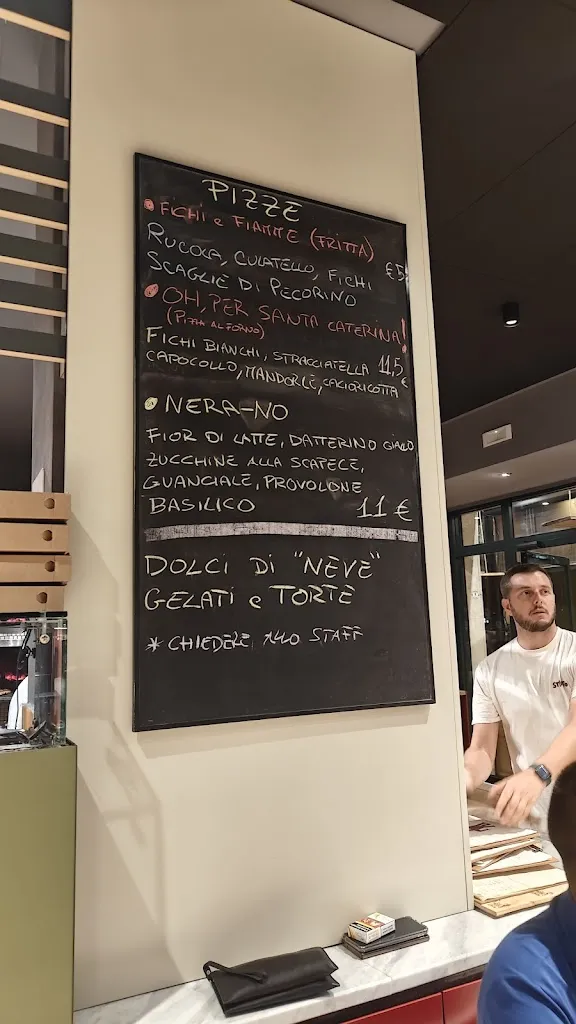 PIZZE
FICHI e FIAMME (FRITTA)
RUCOLA, CULATELLO, FICHI €5
SCAGLIE DI PECORINO
OH, PER SANTA CATERINA!
(PIZZA AL FORNO)
FICHI BIANCHI, STRACCIATELLA 11,5
CAPOCOLLO, MANDORLE, CACIORICOTTA €
NERA-NO
FIOR DI LATTE, DATTERINO GIALLO
ZUCCHINE ALLA SCAPECE,
GUANCIALE, PROVOLONE
BASILICO 11 €
DOLCI DI "NEVE"
GELATI e TORTE
* CHIEDERE ALLO STAFF